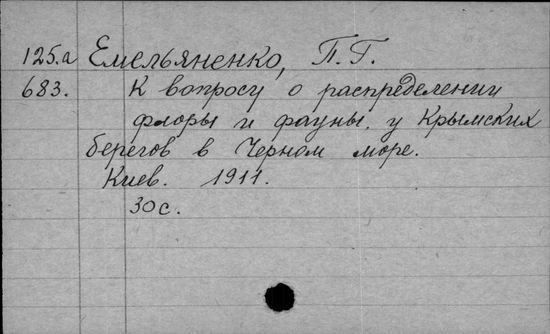 125.а Емельяненко, П. Г.
683. К вопросу о распределении
флоры и фауны. у Крымских
берегов в Черном море.
Киев. 1911.
30 с.